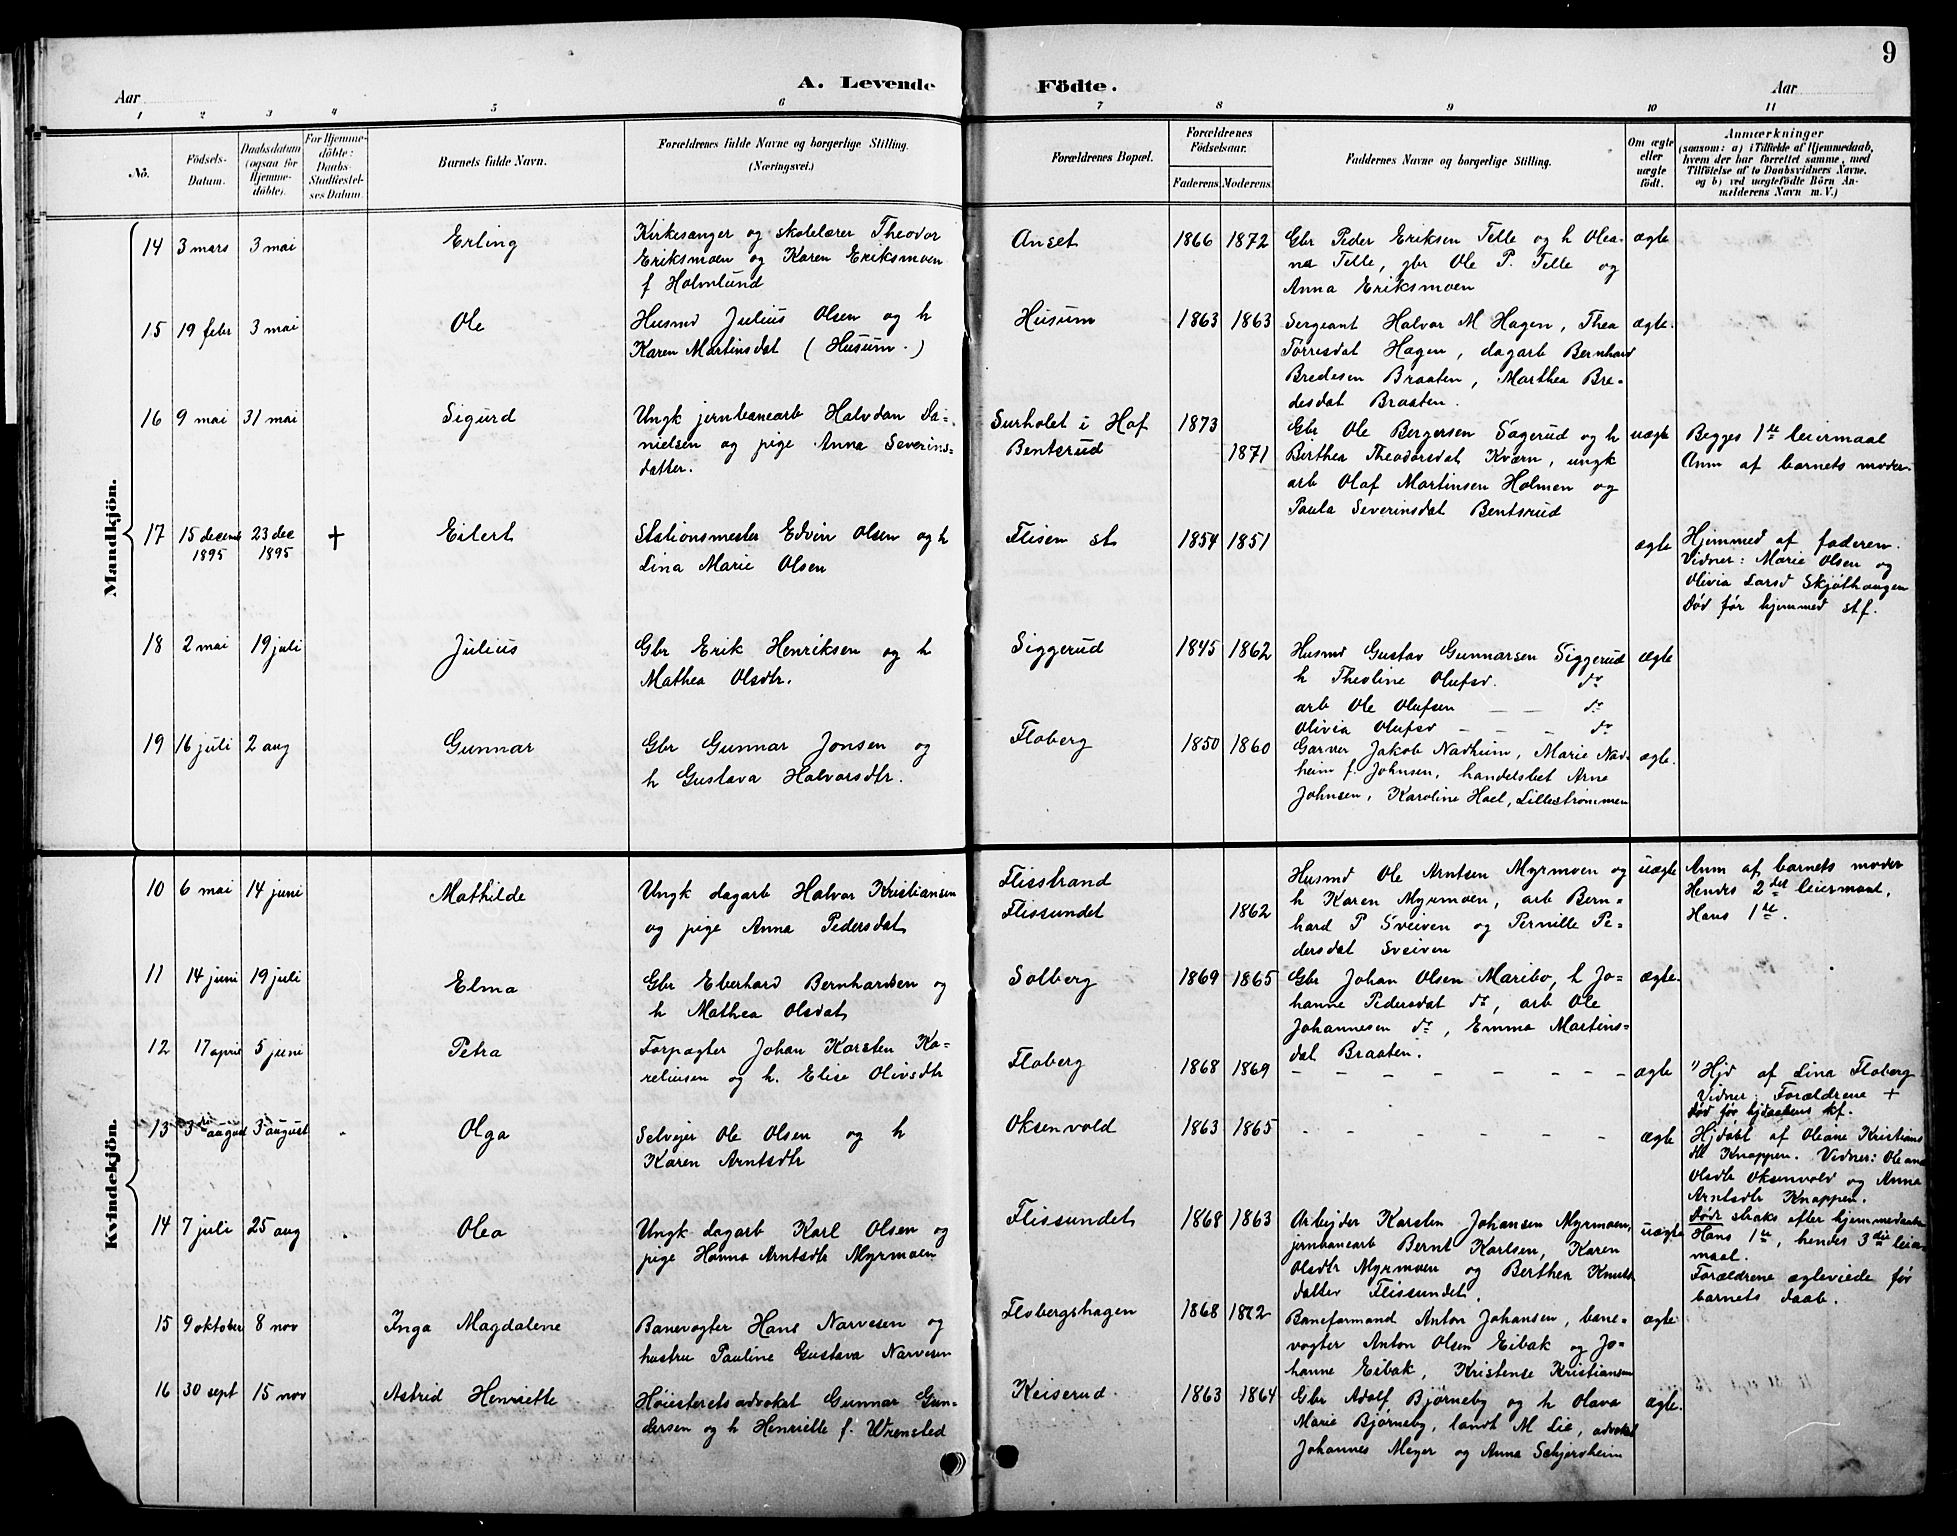 9
A. Levende Födte.
Aar
Aar
1 2 3 4 5 6 7 8 9 10 11
No.
Födsels-Datum.
Daabsdatum (ogsaa for Hjemme-döbte).
For Hjemme-döbte: Daabs-Stadfæstel-ses Datum.
Barnets fulde Navn.
Forældrenes fulde Navne og borgerlige Stilling.
(Næringsvei.)
Forældrenes Bopæl.
Forældrenes Födselsaar.
Faderens. Moderens.
Faddernes Navne og borgerlige Stilling.
Om ægte eller uægte födt.
Anmærkninger
(saasom: a) i Tilfælde af Hjemmedaab,
hvem der har forrettet samme, med
Tilföielse af to Daabsvidners Navne,
og b) ved uægtefödte Börn An-
mälderens Navn m. V.)
Mandkjön.
14 3 mars 3 mai Erling
Kirkesanger og skolelærer Theodor
Eriksmoen og Karen Eriksmoen
f Holmlund
Anset 1866 1872
Gbr Peder Eriksen Telle og h Olea-
na Telle, gbr Ole P. Telle og
Anna Eriksmoen
ægte
15 19 febr 3 mai Ole
Husmd Julius Olsen og h
Karen Martinsdat (Husum.)
Husum 1863 1863
Sergeant Halvor M Hagen, Thea
Torresdat Hagen, dagarb Bernhard
Bredesen Braaten, Marthea Bre-
desdat Braaten.
ægte.
16 9 mai 31 mai Sigurd
Ungk jernbanearb Halvdan Da-
nielsen og pige Anna Severins-
datter.
Surholet i Hof 1873
Bentsrud 1871
Gbr Ole Bergersen Sagerud og h
Birthea Theodorsdat Kværn, ungk
arb Olaf Martinsen Holmen og
Paula Severinsdat Bentsrud
uægte
Begges 1ste leiermaal
Anm af barnets moder.
17 15 decemb 1895 23 dec 1895 + Eilert
Stationsmester Edvin Olsen og h
Lina Marie Olsen
Flisen st 1854 1851
ægte
Hjemmed af faderen.
Vidner: Marie Olsen og
Olivia Larsd Skjøthaugen
Død før hjemmed st.f.
18 2 mai 19 juli Julius
Gbr Erik Henriksen og h
Mathea Olsdtr.
Siggerud 1845 1862
Husmd Gustav Gunnarsen Siggerud
h Theoline Olufsd. do
arb Ole Olufsen — — do
Olivia Olufsd — — — do
ægte
19 16 juli 2 aug Gunnar
Gbr Gunnar Jonsen og
h Gustava Halvorsdtr.
Floberg 1850 1860
Garver Jakob Nadheim, Marie Nad-
heim f. Johnsen, handelsbet Arne
Johnsen, Karoline Hoel, Lillestrømmen
ægte.
Kvindekjön.
10 6 mai 14 juni Mathilde
Ungk dagarb Halvor Kristiansen
og pige Anna Pedersdat
Flisstrand
Flissundet 1862
Husmd Ole Arntsen Myrmoen og
h Karen Myrmoen, arb Bern-
hard P Sveiven og Pernille Pe-
dersdat Sveiven
uægte
Anm af barnets moder
Hendes 2det leiermaal,
Hans 1ste.
11 14 juni 19 juli Elma
Gbr Eberhard Bernhardsen og
h Mathea Olsdat
Solberg 1869 1865
Gbr Johan Olsen Maribo, h Jo-
hanne Pedersdat do, arb Ole
Johannesen do, Emma Martins-
dat Braaten.
ægte.
12 17 april 5 juni Petra
Forpagter Johan Karsten Ka-
reliusen og h. Elise Olivsdtr
Floberg 1868 1869
— — — — — — —
ægte
Hjd af Lina Floberg
Vidner: Forældrene +
Død før hjdaabens kf.
13 3die august 3 august Olga
Selvejer Ole Olsen og h
Karen Arntsdtr
Oksenvold 1863 1865
— — — — — —
ægte
Hjdøbt af Oleane Kristians
dtr Knappen. Vidner: Oleane
Olsdtr Oksenvold og Anna
Arntsdtr Knappen.
Døde straks efter hjemmedaaben
14 7 juli 25 aug Olea
Ungk dagarb Karl Olsen og
pige Hanna Arntsdtr Myrmoen
Flissundet 1868 1863
Arbejder Karsten Johansen Myrmoen,
jernbanearb Bernt Karlsen, Karen
Olsdtr Myrmoen og Berthea Knuts
datter Flissundet.
uægte
Hans 1ste, hendes 3die leier-
maal.
Forældrene ægteviede før
barnets daab.
15 9 oktober 8 nov Inga Magdalene
Banevogter Hans Narvesen og
hustru Pauline Gustava Narvesen
Flobergshagen 1868 1872
Baneformand Anton Johansen, bane-
vogter Anton Olsen Eibak og Jo-
hanne Eibak, Kristense Kristiansen
ægte
16 30 sept 15 nov Astrid Henriette
Høiesteretsadvokat Gunnar Gun-
dersen og h Henriette f. Wrensted
Keiserud. 1863 1864
Gbr Adolf Bjørneby og h Olava
Marie Bjørneby, landh M Lie, advokat
Johannes Meyer og Anna Schjersheim
ægte.